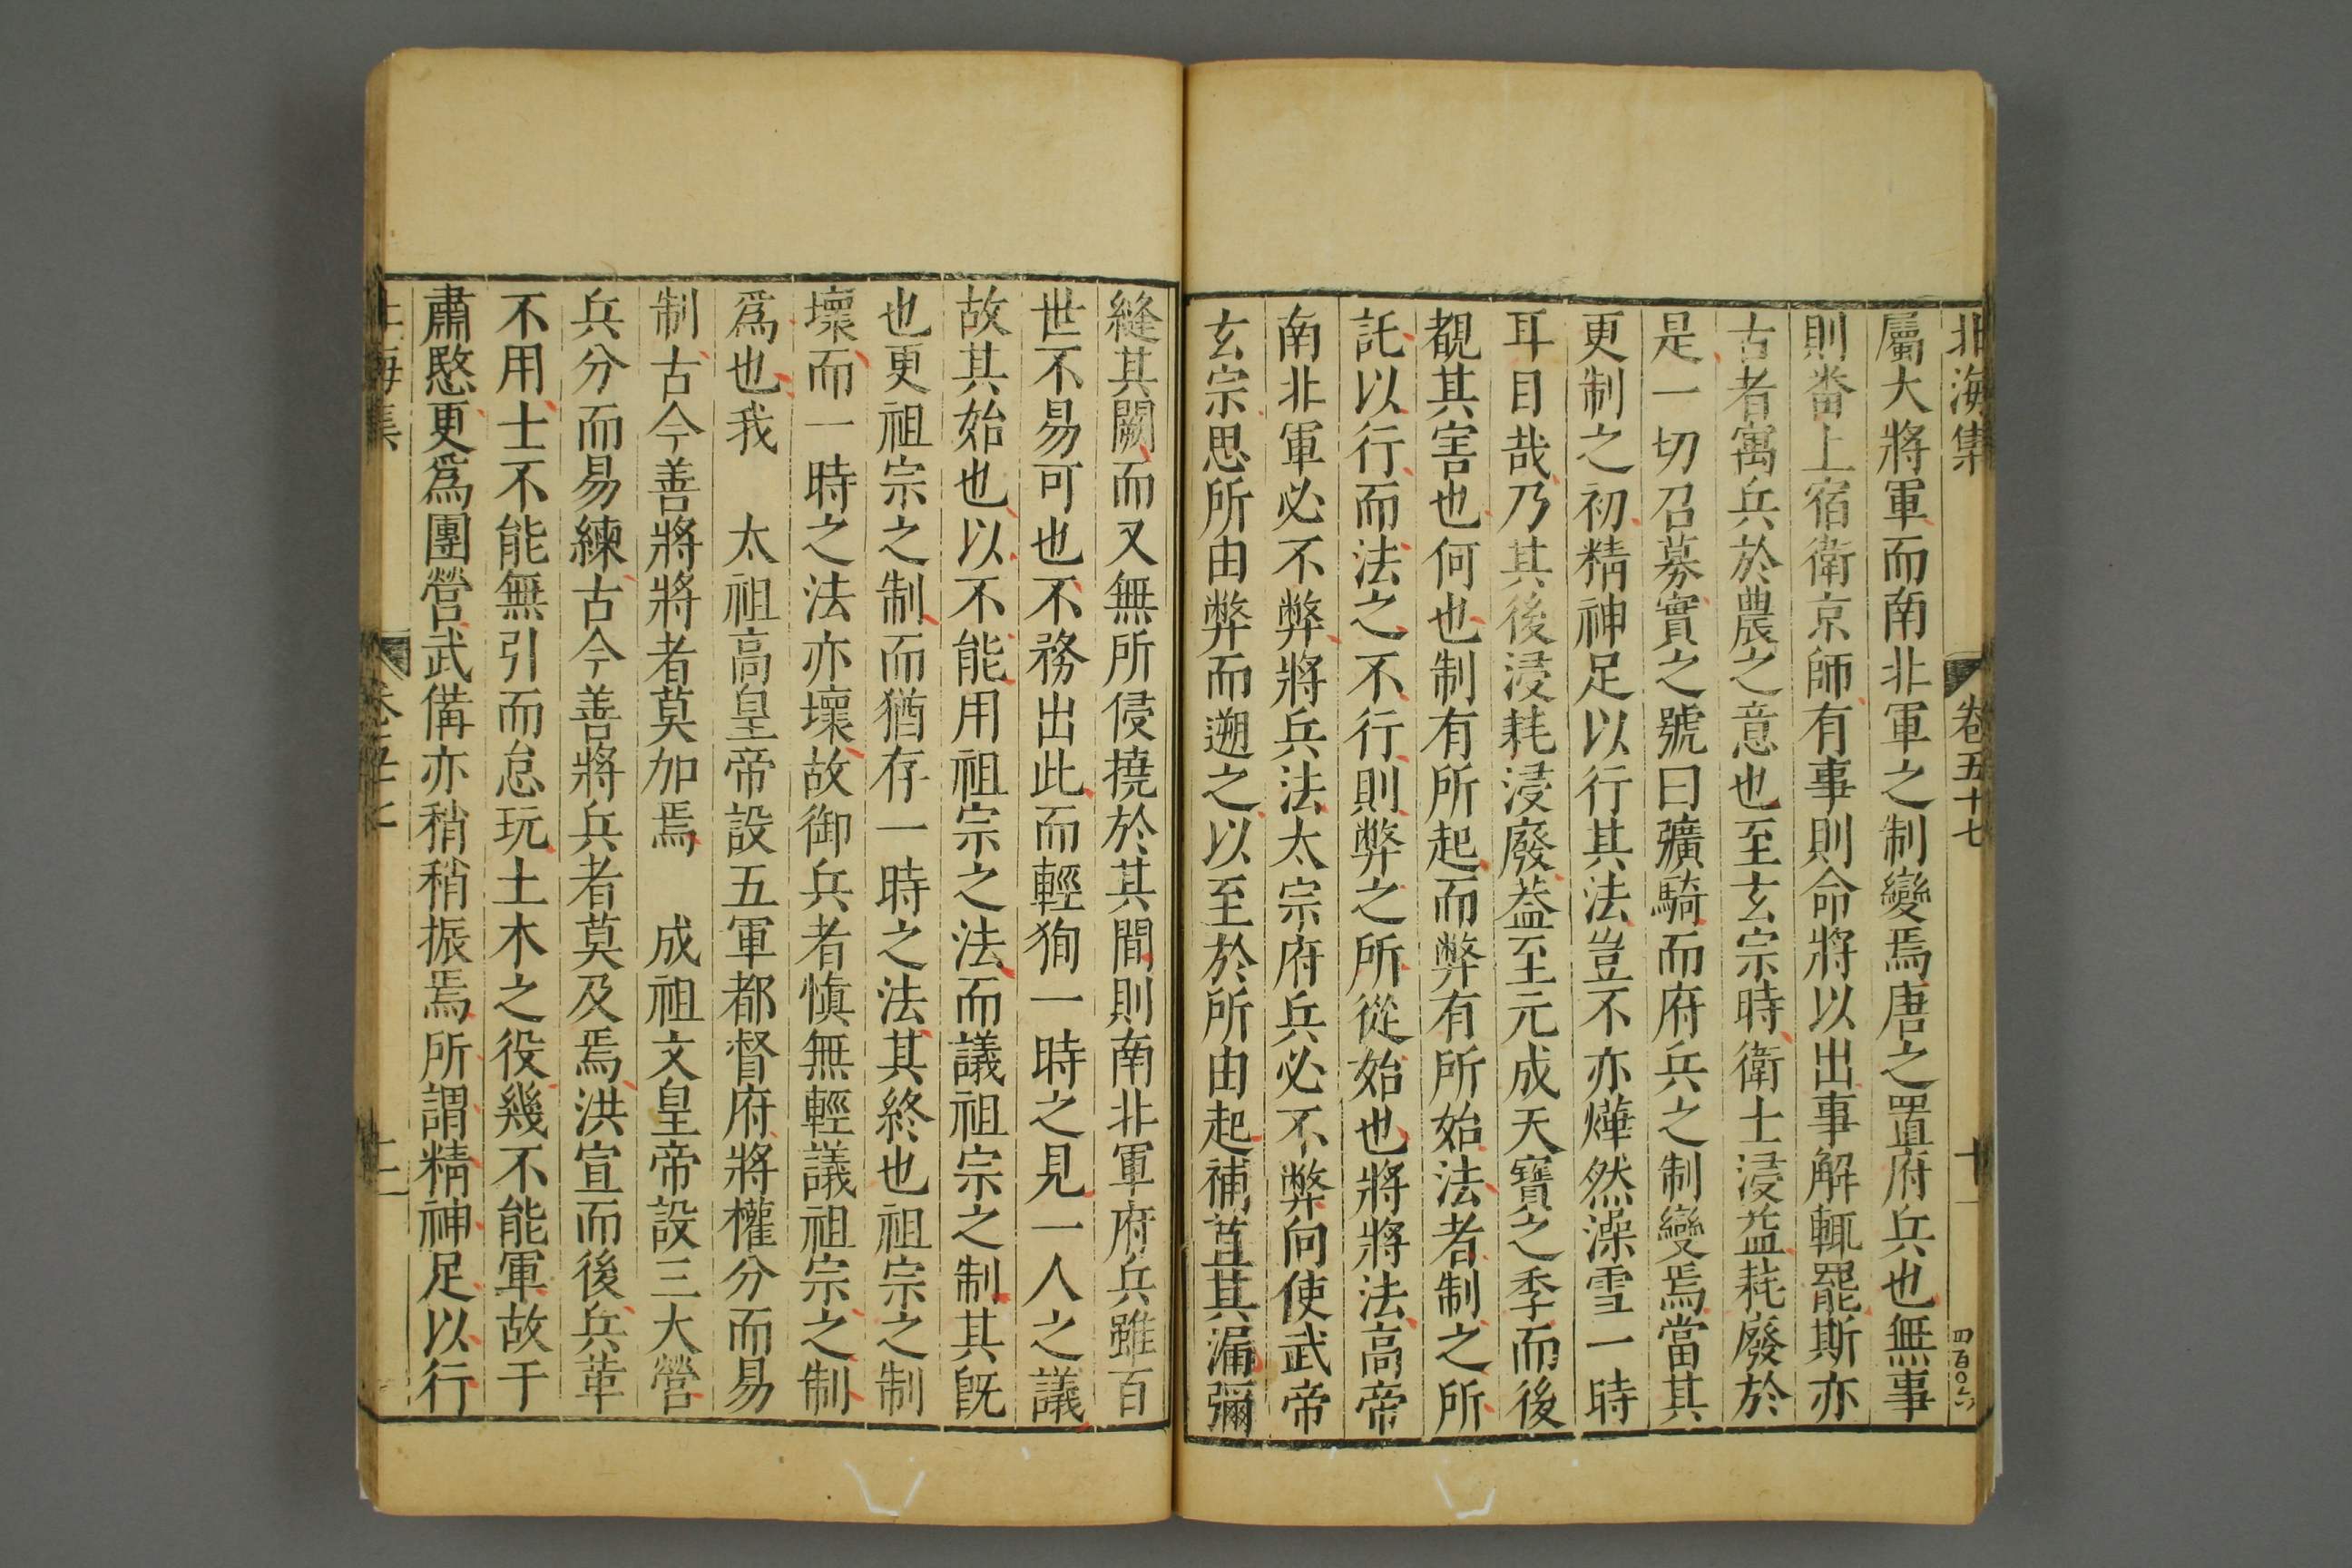 北海集 卷五十七 十一 四百〇六
屬大將軍而南北軍之制變焉唐之置府兵也無事
則番上宿衛京師有事則命將以出事解輒罷斯亦
古者寓兵於農之意也至玄宗時衛士浸益耗廢於
是一切召募實之號曰彍騎而府兵之制變焉當其
更制之初精神足以行其法豈不亦燁然澡雪一時
耳目哉乃其後浸耗浸廢葢至元成天寶之季而後
覩其害也何也制有所起而弊有所始法者制之所
託以行而法之不行則弊之所從始也將將法高帝
南北軍必不弊將兵法太宗府兵必不弊向使武帝
玄宗思所由弊而遡之以至於所由起補苴其漏彌
縫其闕而又無所侵撓於其間則南北軍府兵雖百
世不易可也不務出此而輕狥一時之見一人之議
故其始也以不能用祖宗之法而議祖宗之制其旣
也更祖宗之制而猶存一時之法其終也祖宗之制
壞而一時之法亦壞故御兵者愼無輕議祖宗之制
爲也我 太祖高皇帝設五軍都督府將權分而易
制古今善將將者莫加焉 成祖文皇帝設三大營
兵分而易練古今善將兵者莫及焉洪宣而後兵革
不用士不能無引而怠玩土木之役幾不能軍故于
肅愍更爲團營武備亦稍稍振焉所謂精神足以行
海集